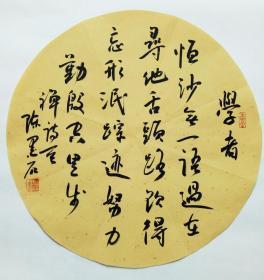 學者
恒沙無一語過在
尋他舌頭路欲得
忘形泯踪迹努力
勤殷空里步
禅诗一首
陈墨石